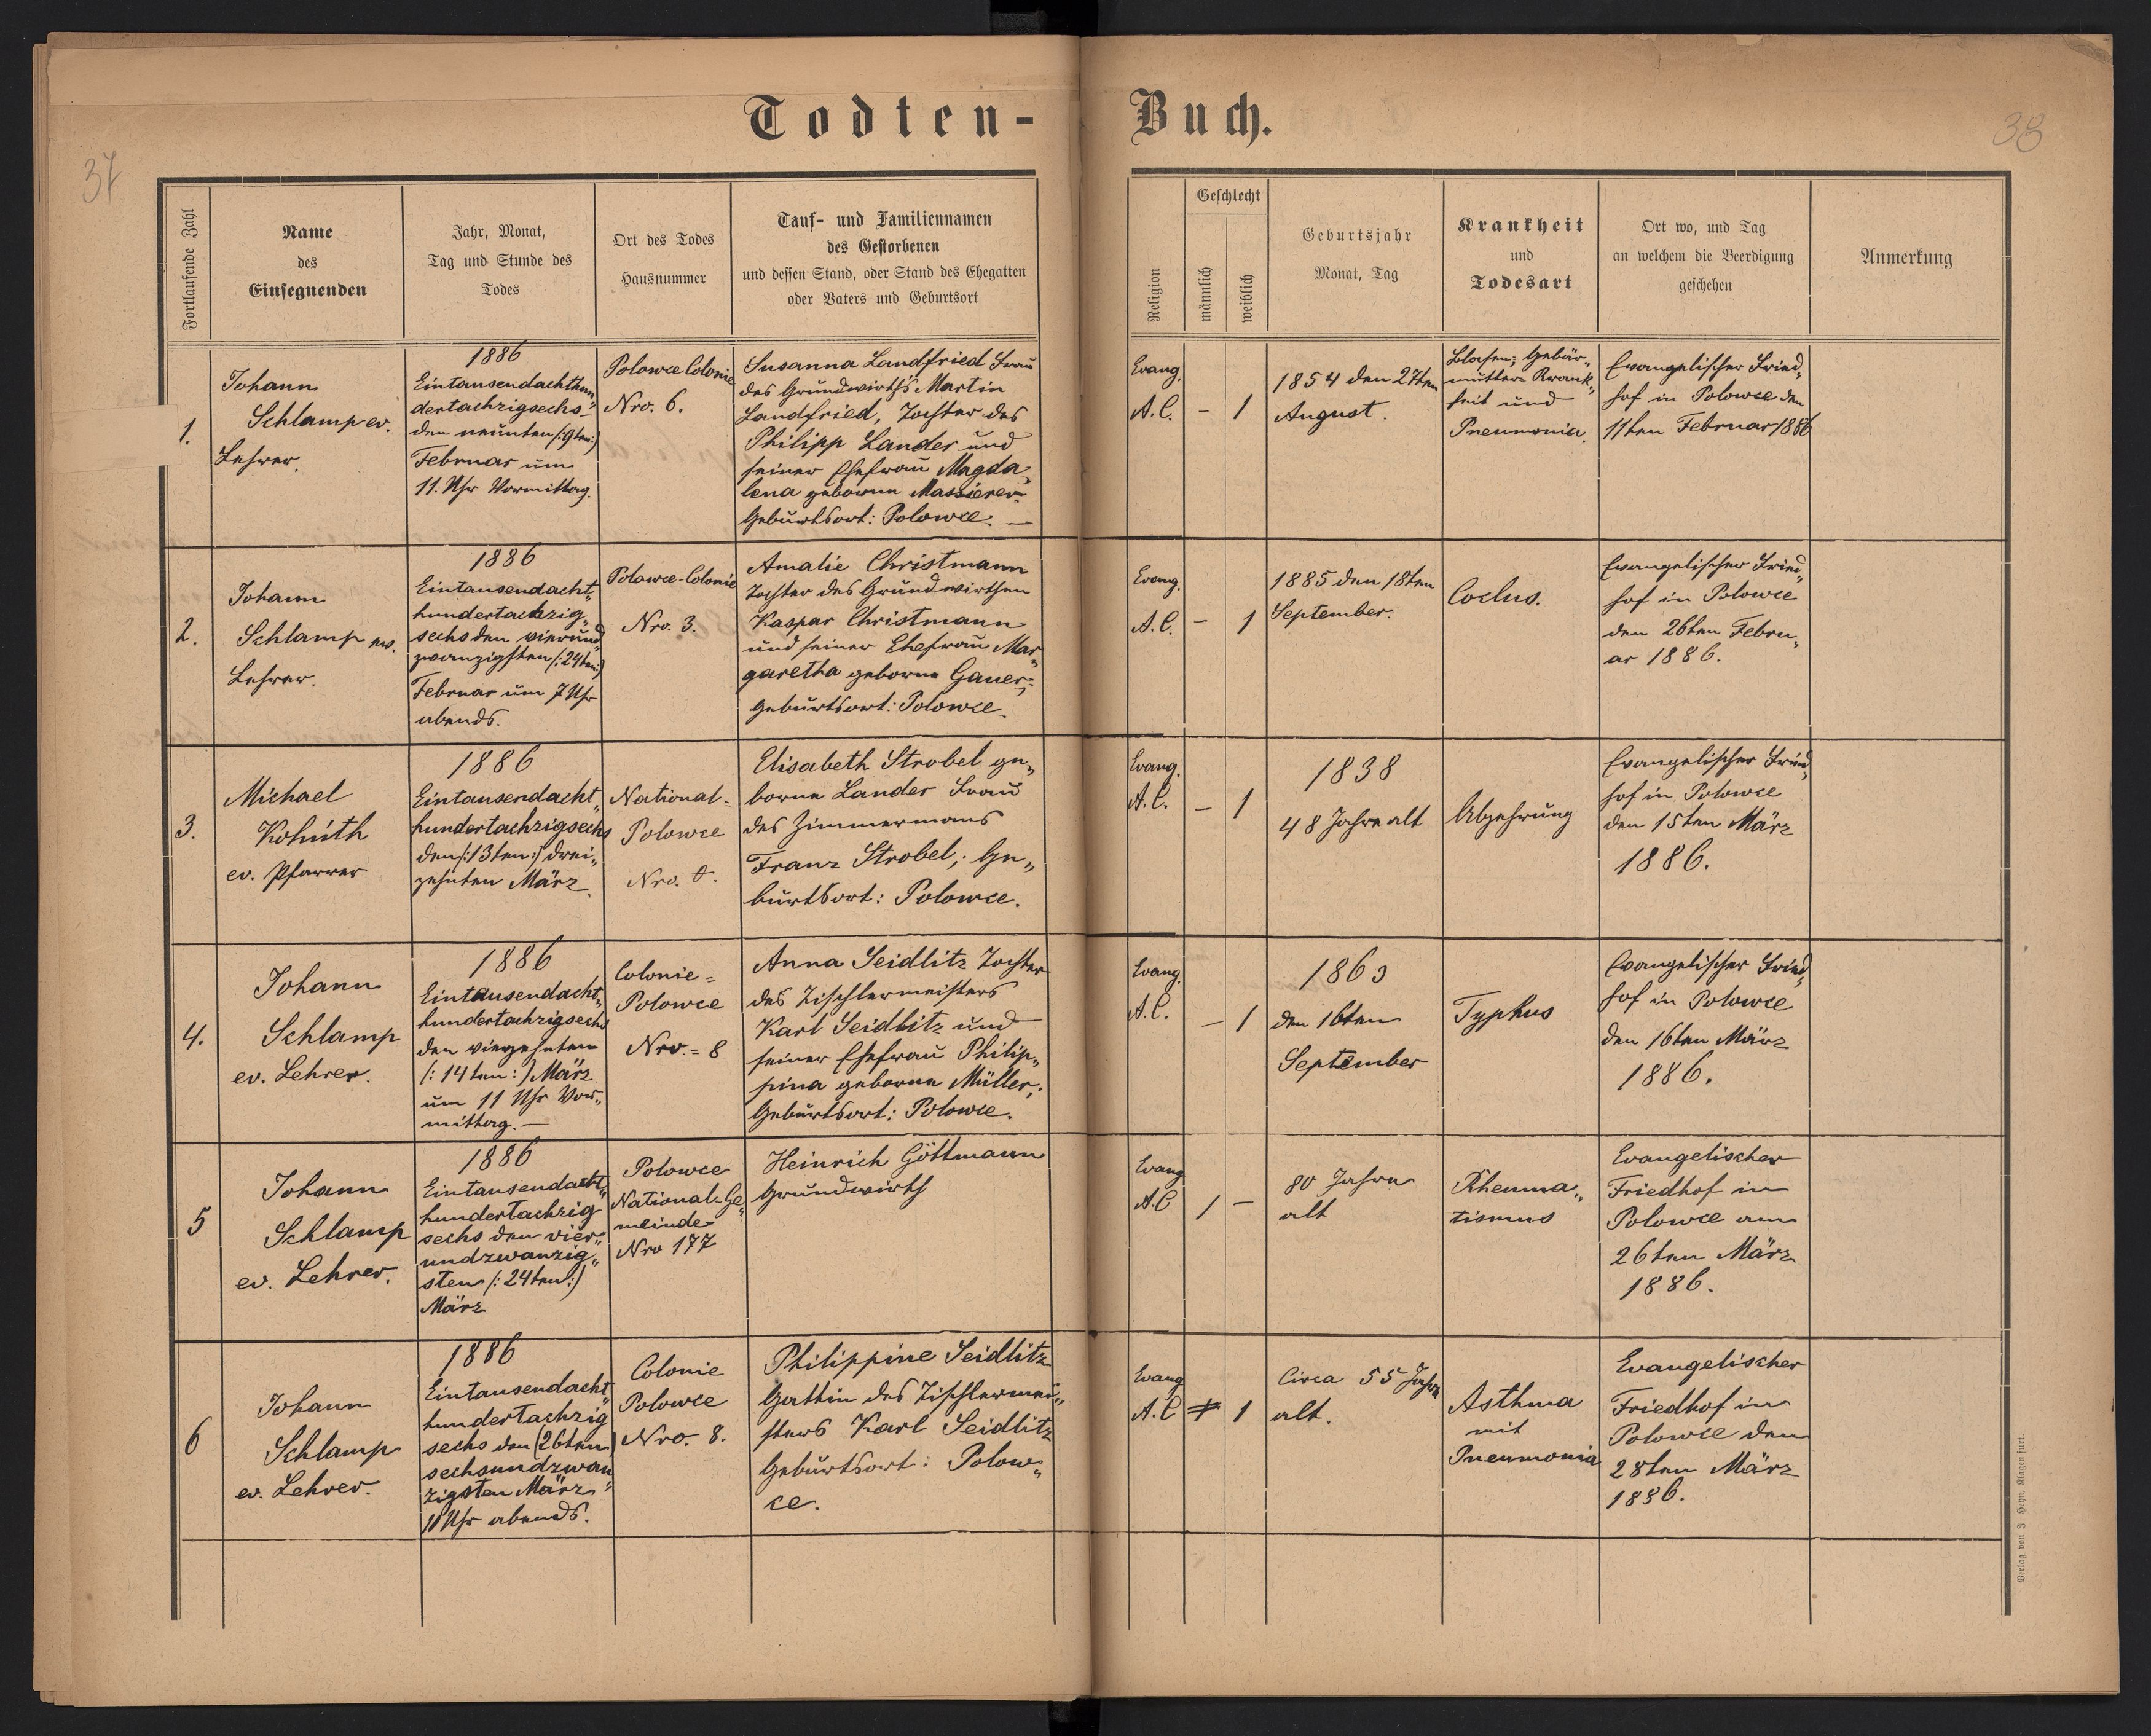 Todten-
Buch.
37
38
Fortlaufende Zahl
Name
des
Einsegnenden
Jahr, Monat,
Tag und Stunde des
Todes
Ort des Todes
Hausnummer
Tauf- und Familiennamen
des Gestorbenen
und dessen Stand, oder Stand des Ehegatten
oder Vaters und Geburtsort
Religion
Geschlecht
männlich
weiblich
Geburtsjahr
Monat, Tag
Krankheit
und
Todesart
Ort wo, und Tag
an welchem die Beerdigung
geschehen
Anmerkung
1.
Johann
Schlamp ev.
Lehrer.
1886
Eintausendachthun„
dertachzigsechs
den neunten /:9ten:/
Februar um
11. Uhr Vormittag.
Polowce Colonie
Nro. 6.
Susanna Landfried Frau
des Grundwirths Martin
Landfried, Tochter des
Philipp Lander und
seiner Ehefrau Magda„
lena geborne Massierer
Geburtsort: Polowce. —
Evang.
A.C.
–
1
1854 den 27ten
August.
Blasen; Gebär„
mutter Krank„
heit und
Pneumonia.
Evangelischer Fried„
hof in Polowce den
11ten Februar 1886
2.
Johann
Schlamp ev.
Lehrer.
1886
Eintausendacht„
hundertachzig„
sechs den vierund„
zwanzigsten /:24ten:/
Februar um 7 Uhr
abends.
Polowce-Colonie
Nro. 3.
Amalie Christmann
Tochter des Grundwirthen
Kaspar Christmann
und seiner Ehefrau Mar„
garetha geborne Gauer;
Geburtsort: Polowce.
Evang.
A.C.
–
1
1885 den 18ten
September.
Evangelischer Fried„
hof in Polowce
den 26ten Febru„
ar 1886.
3.
Michael
Kohúth
ev. Pfarrer
1886
Eintausendacht„
hundertachzigsechs
den /:13ten:/ drei„
zehnten März.
National=
Polowce
Nro. 0.
Elisabeth Strobel ge„
borne Lander Frau
des Zimmermans
Franz Strobel; Ge„
burtsort: Polowce.
Evang.
A.C.
–
1
1838
48 Jahre alt
Abzehrung
Evangelischer Fried„
hof in Polowce
den 15ten März
1886.
4.
Johann
Schlamp
ev. Lehrer.
1886
Eintausendacht„
hundertachzigsechs
den vierzehnten
/: 14ten :/ März
um 11 Uhr Vor„
mittag. —
Colonie=
Polowce
Nro.= 8
Anna Seidlitz Tochter
des Tischlermeisters
Karl Seidlitz und
seiner Ehefrau Philip„
pina geborne Müller;
Geburtsort: Polowce.
Evang.
A.C.
–
1
den 16ten
September
Typhus
Evangelischer Fried„
hof in Polowce
den 16ten März
1886.
5
Johann
Schlamp
ev. Lehrer.
1886
Eintausendacht„
hundertachzig
sechs den vier„
undzwanzig„
sten /:24ten:/
März
Polowce
National=Ge„
meinde
Nro 177
Heinrich Göttmann
Grundwirth
Evang
A.C
1
–
80 Jahre
alt
Rheuma„
tismus
Evangelischer
Friedhof in
Polowce am
26ten März
1886.
6
Johann
Schlamp
ev. Lehrer.
1886
Eintausendacht„
hundertachzig
sechs den (26ten)
sechsundzwan
zigsten März
11 Uhr abends.
Colonie
Polowce
Nro. 8.
Philippine Seidlitz
Gattin des Tischlermei„
sters Karl Seidlitz
Geburtsort: Polow„
ce.
Evang
A.C
1
Circa 55 Jahre
alt.
Asthma
mit
Pneumonia
Evangelischer
Friedhof in
Polowce den
28ten März
1886.
Verlag von J Heyn. Klagenfurt.